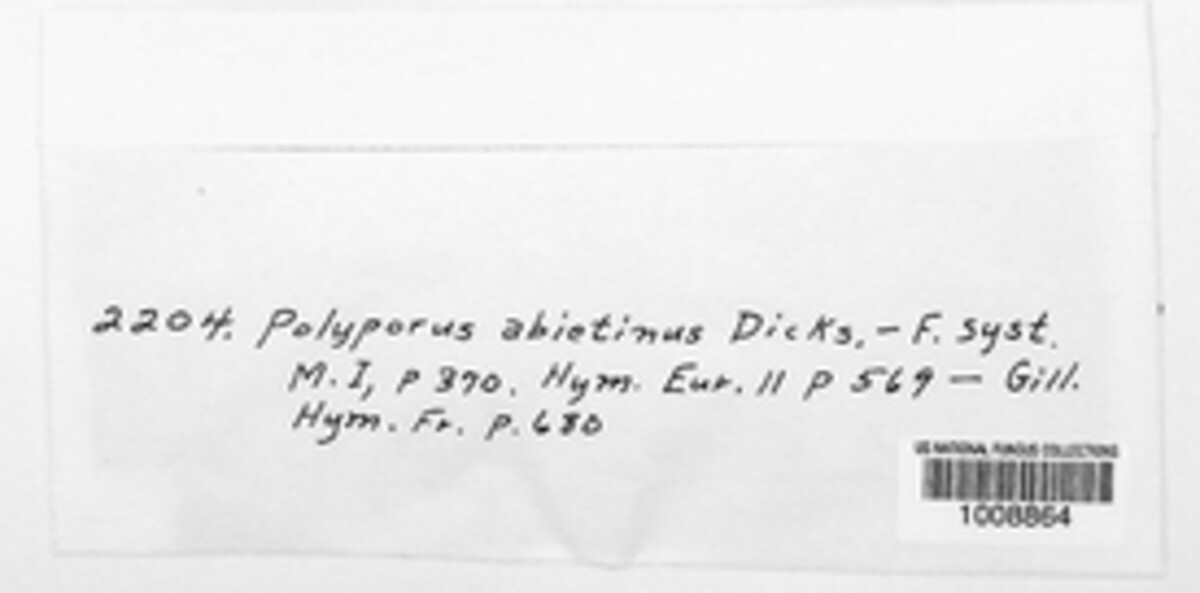 2204. Polyporus abietinus Dicks. — F. Syst.
M. I, p 370. Hym. Eur. II p 569 — Gill.
Hym. Fr. p. 680
US NATIONAL FUNGUS COLLECTIONS
1008864